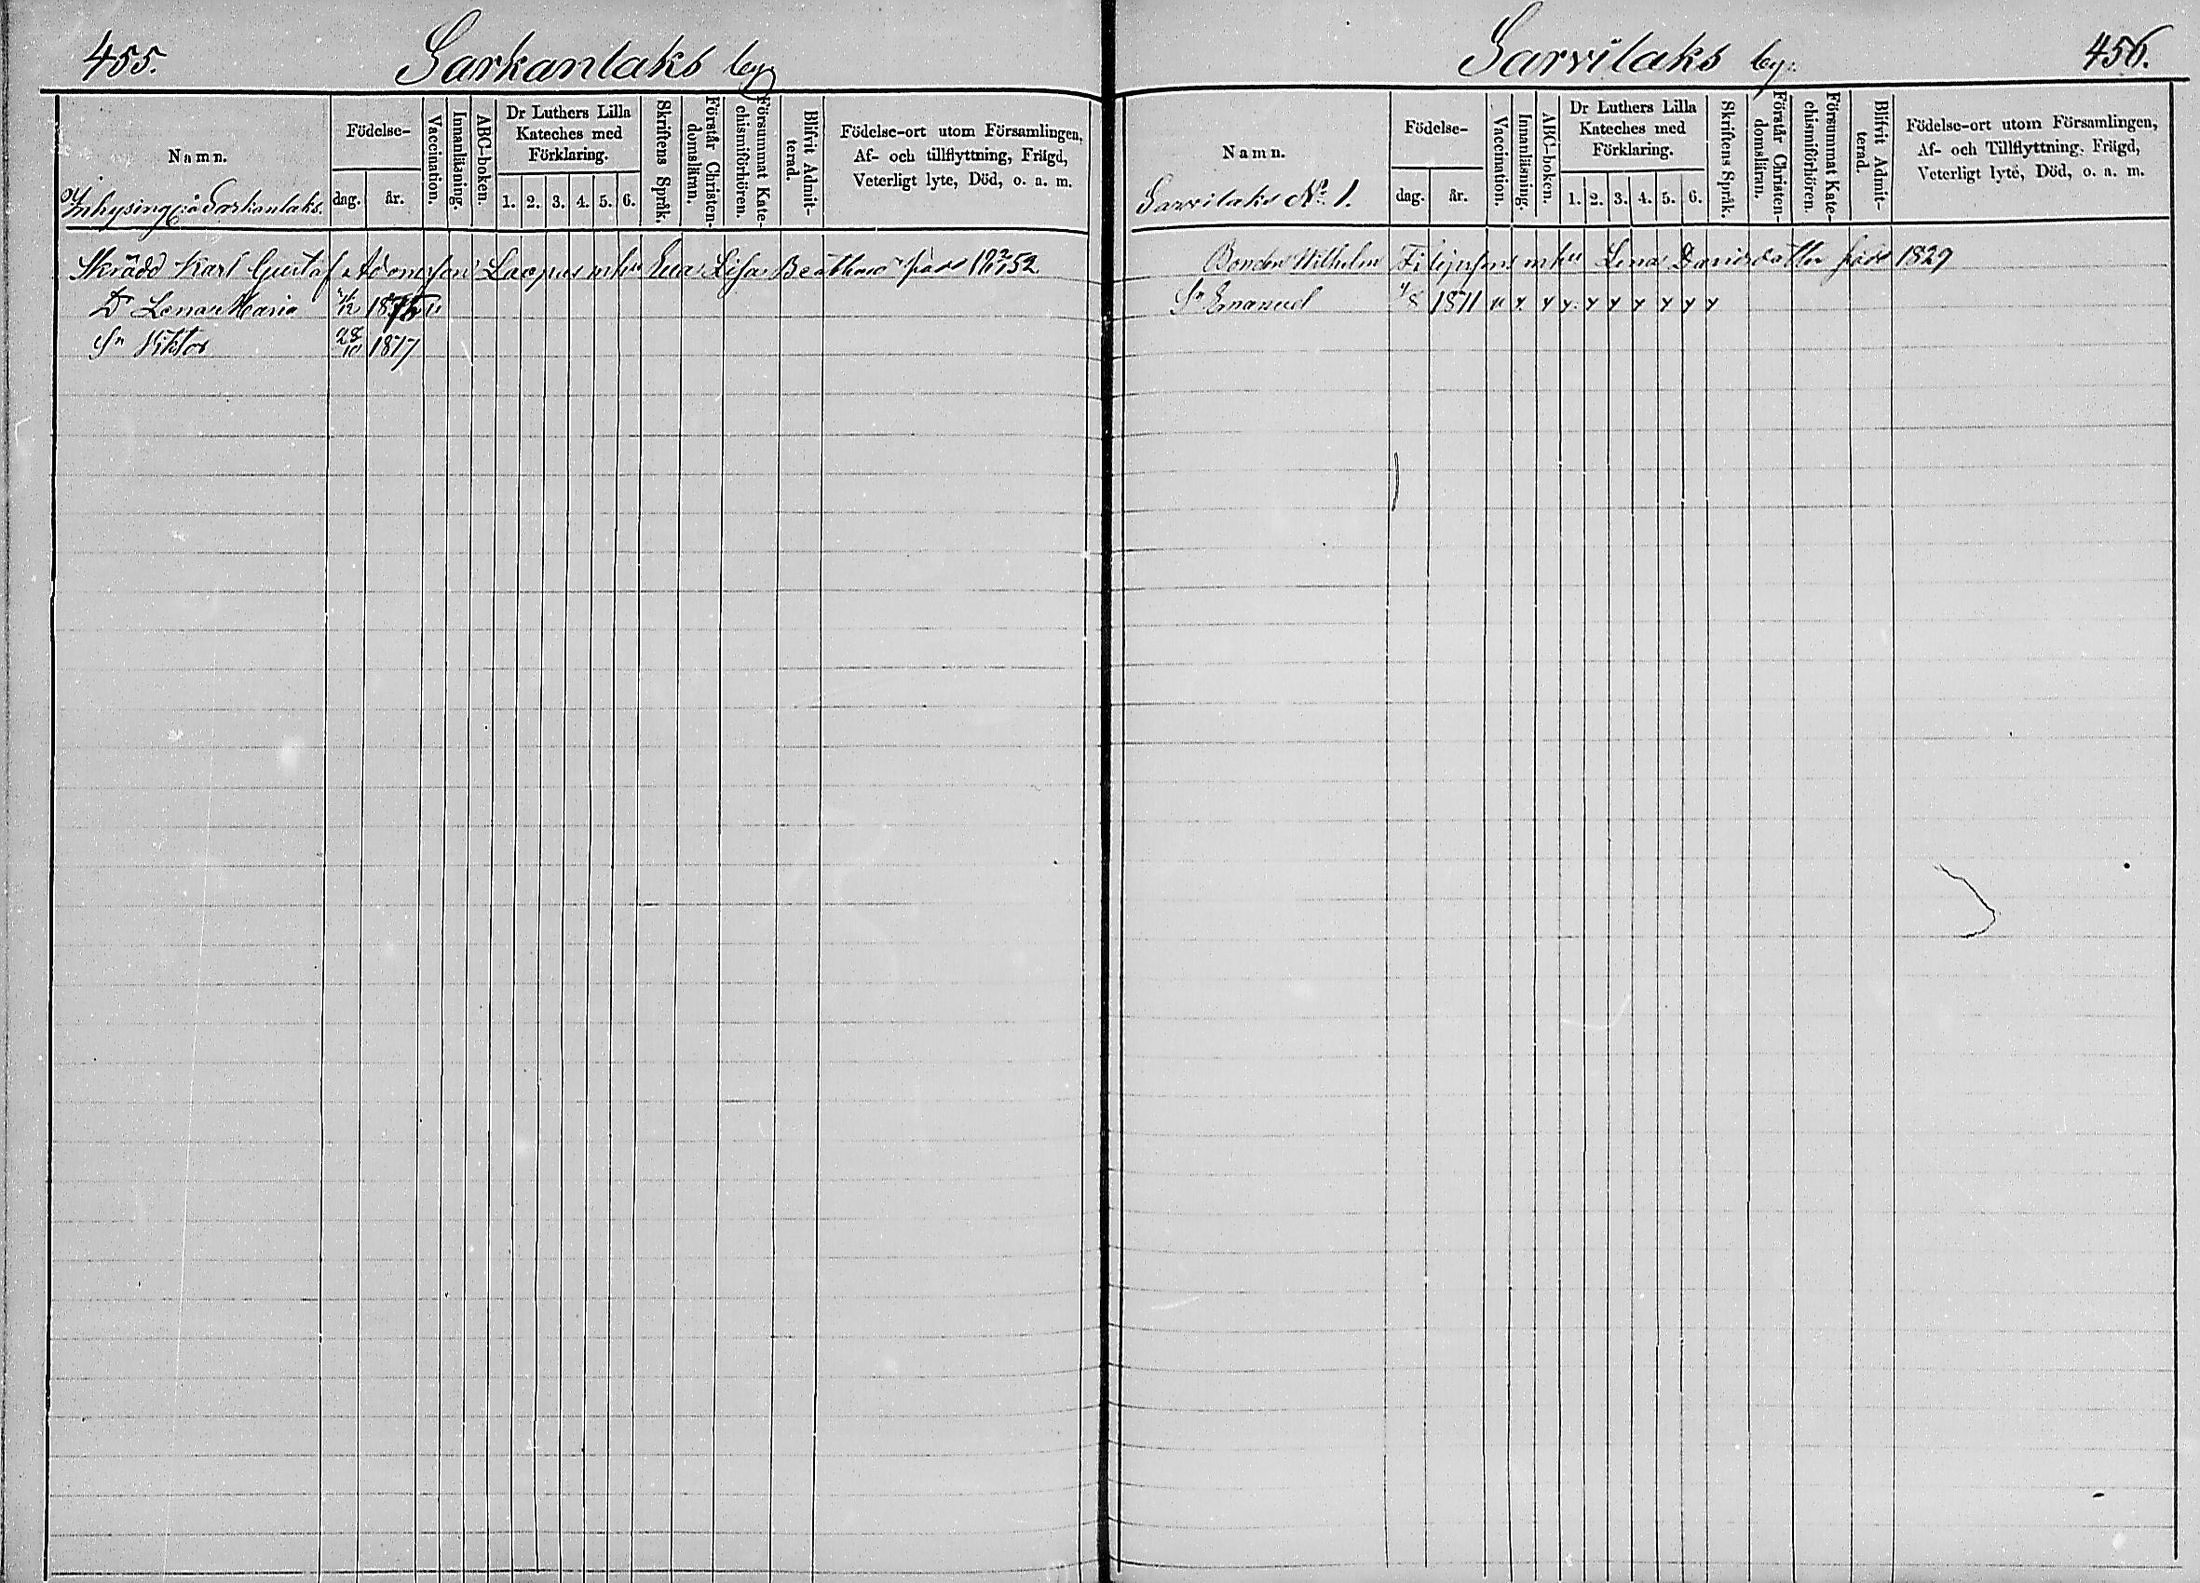 455. Sarkanlaks by.
Namn.
Födelse-
dag. år.
Vaccination.
Innanläsning.
ABC-boken.
Dr Luthers Lilla
Kateches med
Förklaring.
1. 2. 3. 4. 5. 6.
Skriftens Språk.
Förstår Christen-
domsläran.
Försummat Kate-
chismiförhören.
Blifvit Admit-
terad.
Födelse-ort utom Församlingen,
Af- och tillflyttning, Frägd,
Veterligt lyte, Död, o. a. m.
Inhysing på Sarkanlaks.
Skrädd Karl Gustaf Adamsson Lacpus m hu Eva Lisa född 52
Dr Lena Maria
Sn Viktor 28/10 1877
Sarvilaks by. 456.
Namn.
Födelse-
dag. år.
Vaccination.
Innanläsning.
ABC-boken.
Dr Luthers Lilla
Kateches med
Förklaring.
1. 2. 3. 4. 5. 6.
Skriftens Språk.
Förstår Christen-
domsläran.
Försummat Kate-
chismiförhören.
Blifvit Admit-
terad.
Födelse-ort utom Församlingen,
Af- och Tillflyttning, Frägd,
Veterligt lyte, Död, o. a. m.
Sarvilaks No 1.
Bonden Wilhelm Filipssons m hu Lena Davidsdotter född 1829
Sn Emanuel 4/8 1871 v x x x x x x x x x